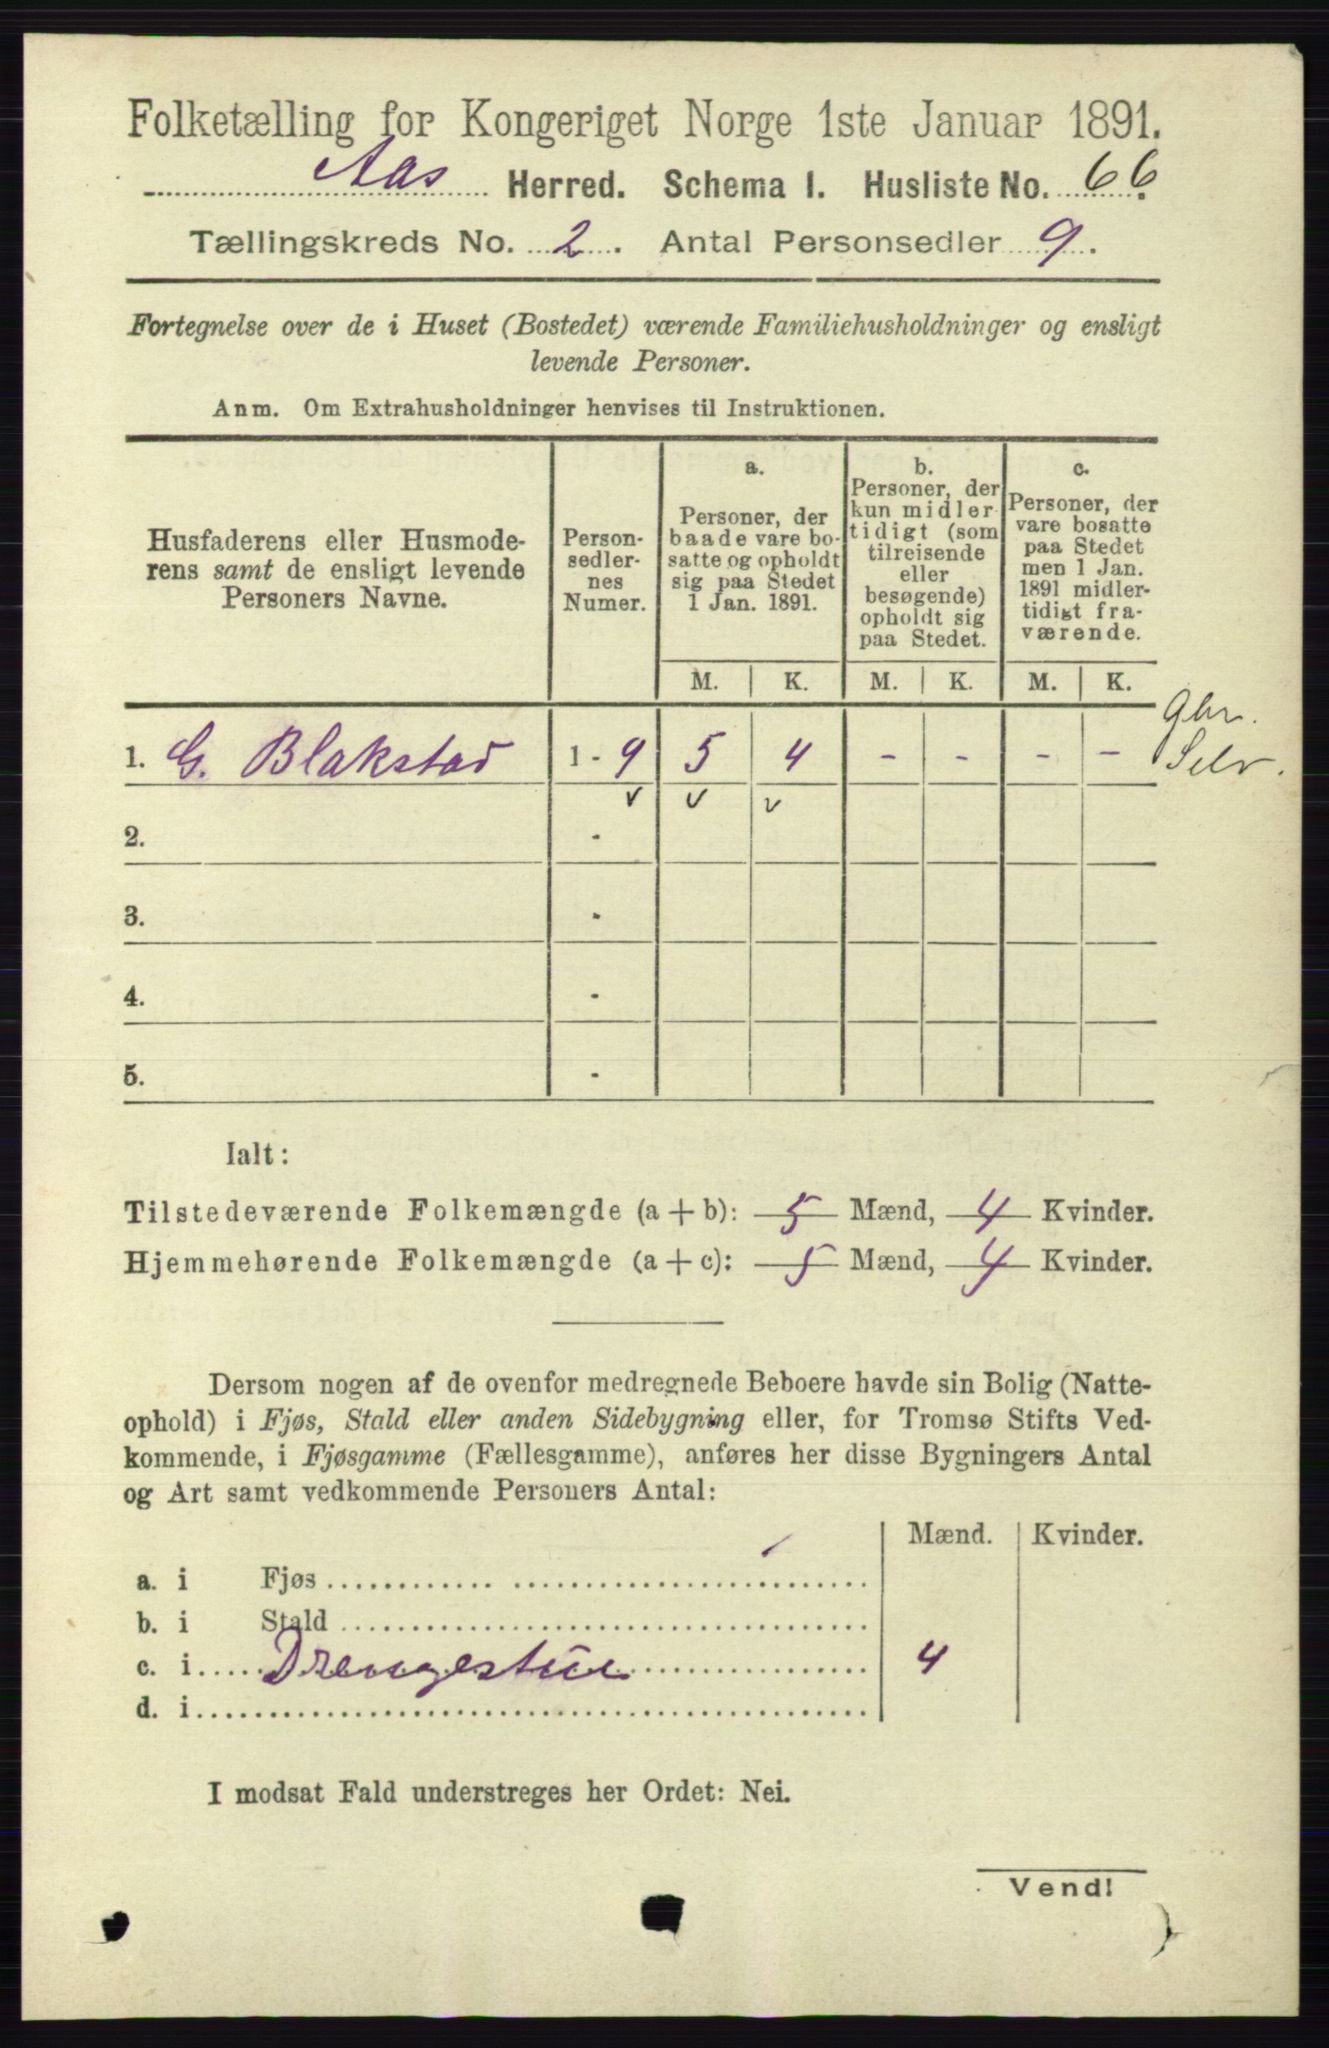 Folketælling for Kongeriget Norge 1ste Januar 1891.
Aas Herred. Schema 1. Husliste No. 66
Tællingskreds No. 2. Antal Personsedler 9.
Fortegnelse over de i Huset (Bostedet) værende Familiehusholdninger og ensligt
levende Personer.
Anm. Om Extrahusholdninger henvises til Instruktionen.
Husfaderens eller Husmode-
rens samt de ensligt levende
Personers Navne.
Person-
sedler-
nes
Numer.
a.
Personer, der
baade vare bo-
satte og opholdt
sig paa Stedet
1 Jan. 1891.
b.
Personer, der
kun midler-
tidigt (som
tilreisende
eller
besøgende)
opholdt sig
paa Stedet.
c.
Personer, der
vare bosatte
paa Stedet
men 1 Jan.
1891 midler-
tidigt fra-
værende.
M. K. M. K. M. K.
1. G. Blakstad 1 - 9 5 4 - - - -
Gbr.
Selv.
v v v
2. -
3. -
4. -
5. -
Ialt:
Tilstedeværende Folkemængde (a + b): 5 Mænd, 4 Kvinder.
Hjemmehørende Folkemængde (a + c): 5 Mænd, 4 Kvinder.
Dersom nogen af de ovenfor medregnede Beboere havde sin Bolig (Natte-
ophold) i Fjøs, Stald eller anden Sidebygning eller, for Tromsø Stifts Ved-
kommende, i Fjøsgamme (Fællesgamme), anføres her disse Bygningers Antal
og Art samt vedkommende Personers Antal:
Mænd. Kvinder.
a. i Fjøs
b. i Stald
c. i Drengestue 4
d. i
I modsat Fald understreges her Ordet: Nei.
Vend!